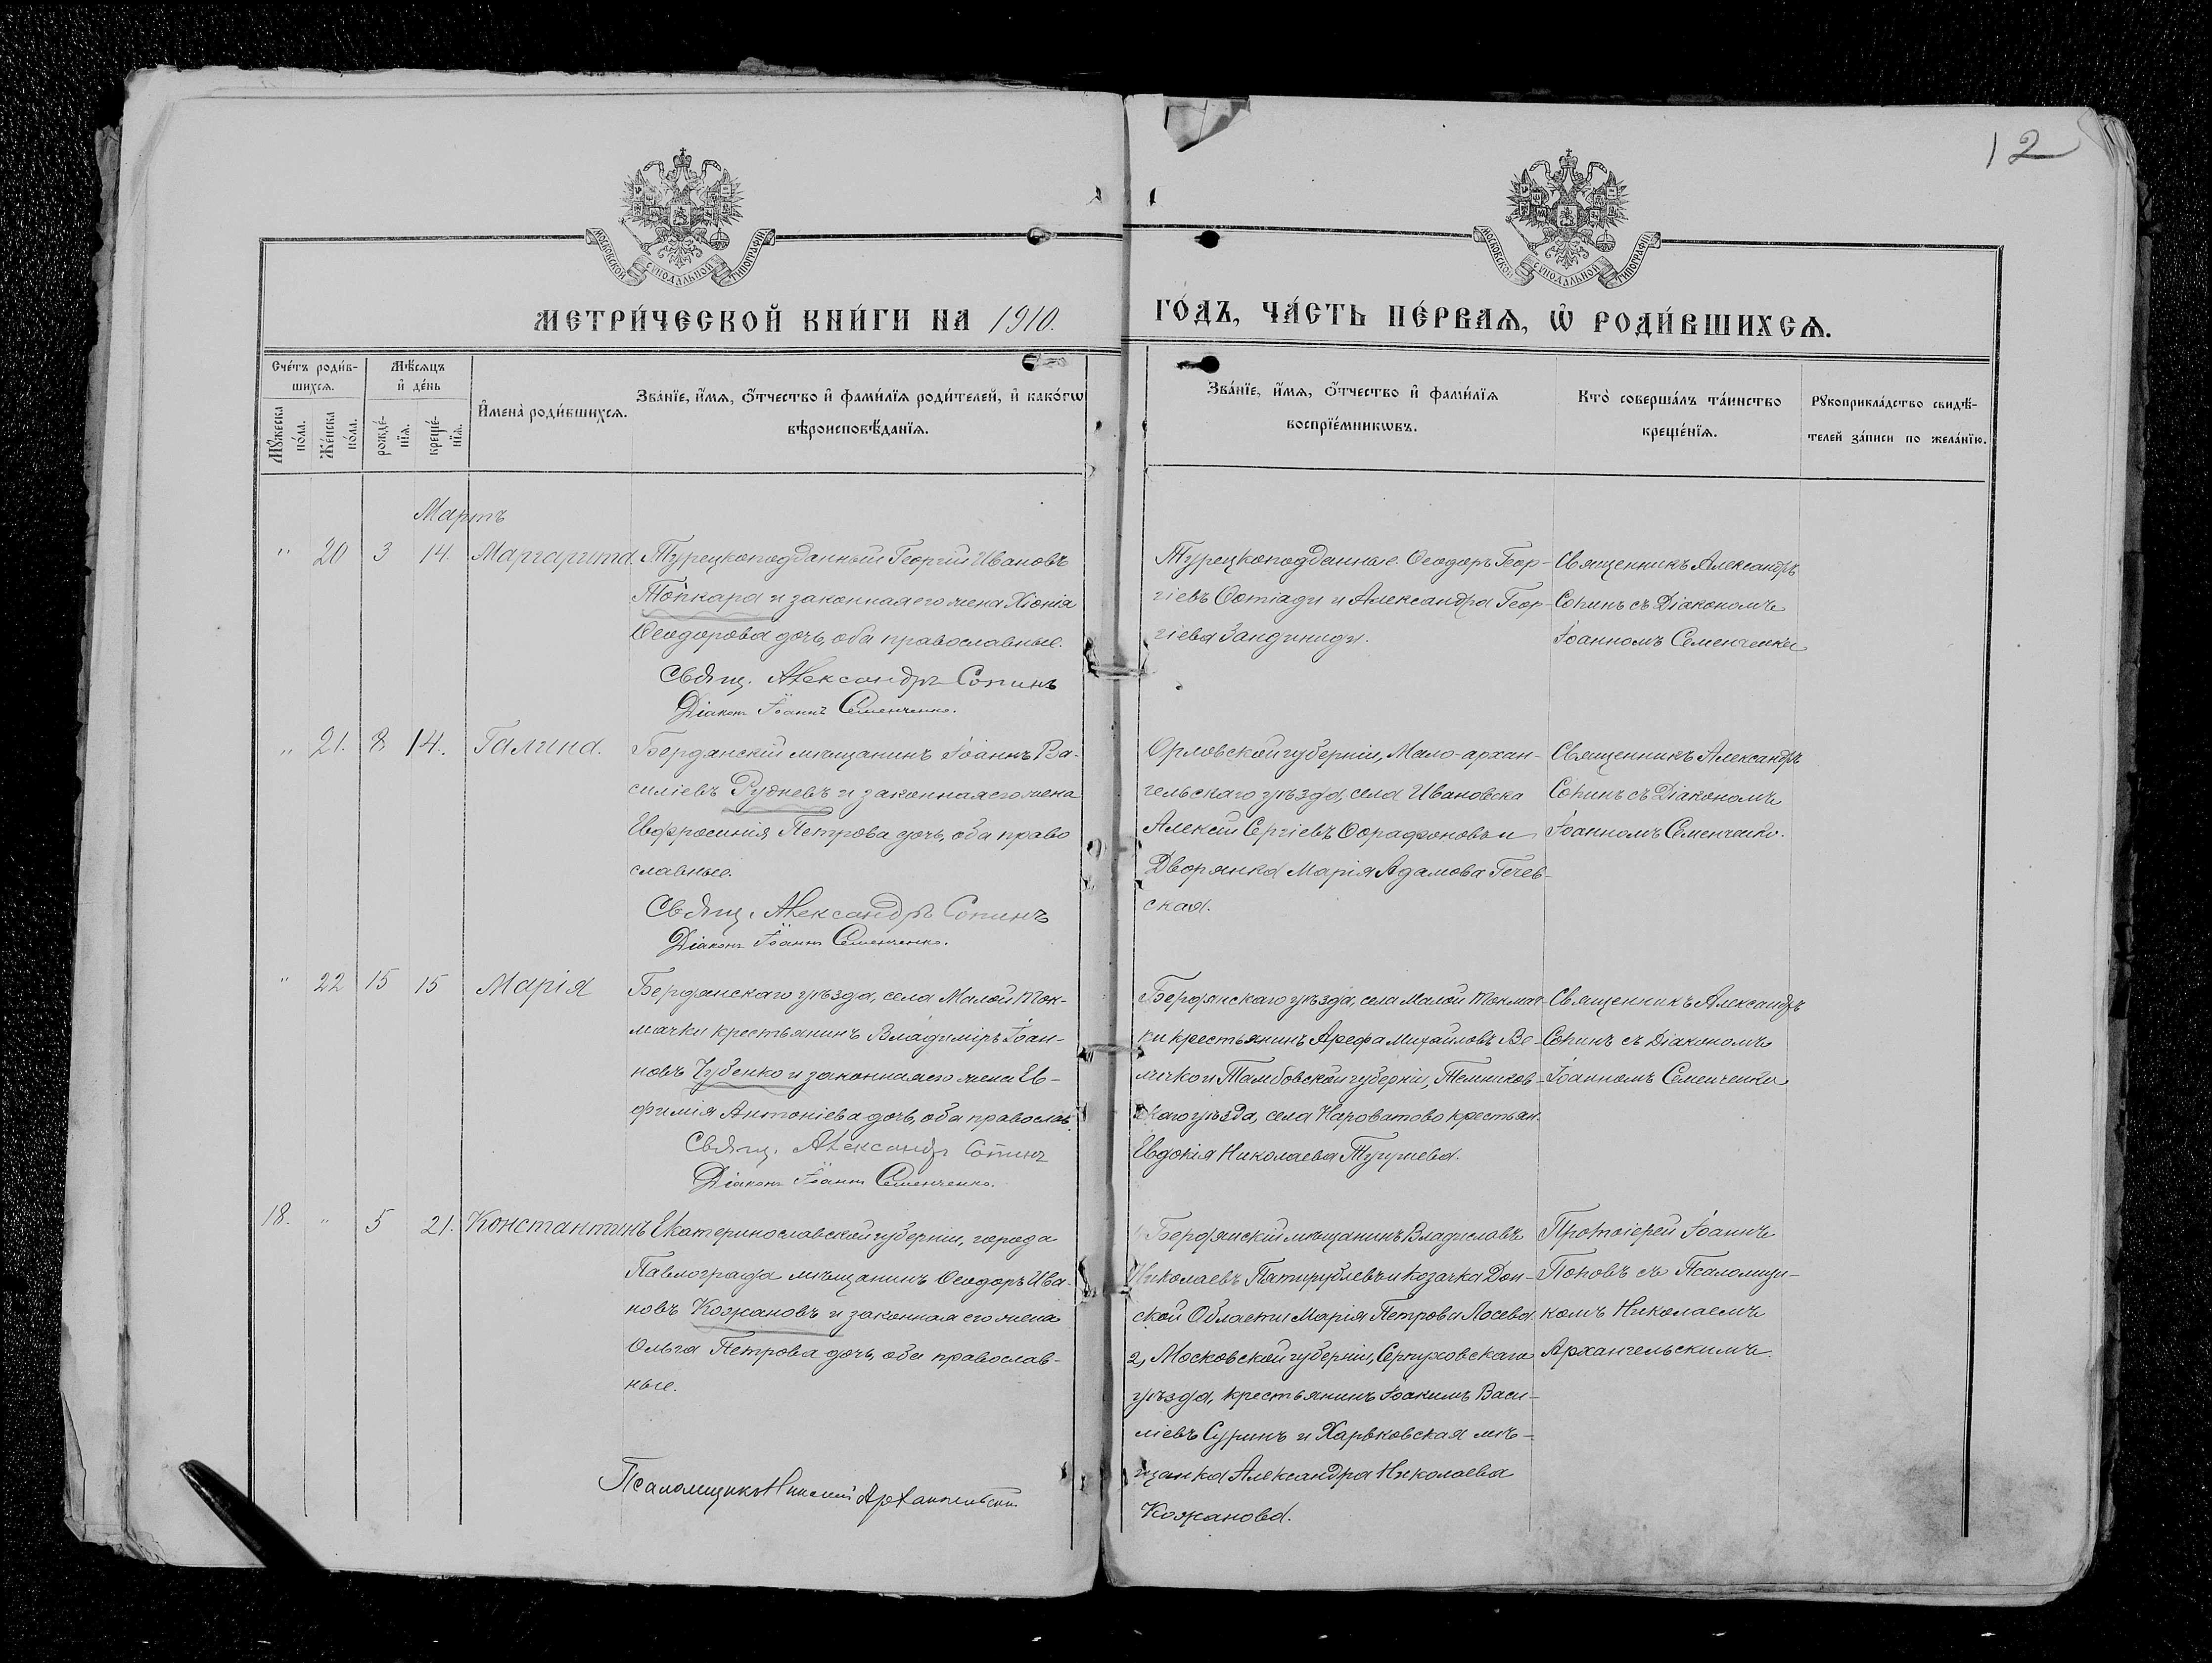 12
МОСКОВСКОЙ СУНОДАЛЬНОЙ ТИПОГРАФІИ
МОСКОВСКОЙ СУНОДАЛЬНОЙ ТИПОГРАФІИ
МЕТРИ́ЧЕСКОЙ КНИ́ГИ НА 1910.
ГО́ДЪ, ЧА́СТЬ ПЕ́РВАѦ, Ѡ҆ РОДИ́ВШИХСѦ.
Сче́тъ роди́в-
шихсѧ.
Мѣ́сѧцъ
и҆ де́нь
Мꙋ́жеска
по́ла.
Же́нска
по́ла.
рожде́-
нїѧ.
креще́-
нїѧ.
И҆мена̀ роди́вшихсѧ.
Зва́нїе, и҆́мѧ, ѻ҆́тчество и҆ фами́лїѧ роди́телей, и҆ како́гѡ
вѣроисповѣ́данїѧ.
Зва́нїе, и҆́мѧ, ѻ҆́тчество и҆ фами́лїѧ
воспрїе́мникѡвъ.
Кто̀ соверша́лъ та́инство
креще́нїѧ.
Рꙋкоприкла́дство свидѣ́-
телей за́писи по жела́нїю.
Мартъ
" 20 3 14. Маргарита. Турецкоподданный Георгій Ивановъ
Топкара и законная его жена Хіонія
Ѳеодорова дочь, оба православные.
Свящ. Александръ Сопинъ
Діаконъ Іоаннъ Семенченко.
Турецкоподданные Ѳеодоръ Геор-
гіевъ Фотіади и Александра Геор-
гіева Зандиниди.
Священникъ Александръ
Сопинъ съ Діакономъ
Іоанномъ Семенченко
" 21. 8 14. Галина. Бердянскій мѣщанинъ Іоаннъ Ва-
силіевъ Рудневъ и законная его жена
Евфросинія Петрова дочь, оба право
славные.
Свящ. Александръ Сопинъ
Діаконъ Іоаннъ Семенченко.
Орловской губерніи, Мало-архан-
гельскаго уѣзда, села Ивановска
Алексій Сергіевъ Ѳорафоновъ и
Дворянка Марія Адамова Гечев-
ская.
Священникъ Александръ
Сопинъ съ Діакономъ
Іоанномъ Семенченко.
" 22 15 15 Марія Бердянскаго уѣзда, села Малой Ток-
мачки крестьянинъ Владиміръ Іоан-
новъ Чубенко и законная его жена Ев-
фимія Антоніева дочь, оба православ.
Свящ. Александръ Сопинъ
Діаконъ Іоаннъ Семенченко.
Бердянскаго уѣзда, села Малой Токмач-
ки крестьянинъ Арефа Михайловъ Ве-
личко и Тамбовской губерніи, Темников-
скаго уѣзда, села Нароватово крестьян.
Евдокія Николаева Тугушева.
Священникъ Александръ
Сопинъ съ Діакономъ
Іоанномъ Семенченко
18. " 5 21. Константинъ Екатеринославской губерніи, города
Павлограда мѣщанинъ Ѳеодоръ Ива-
новъ Кожановъ и законная его жена
Ольга Петрова дочь, оба православ-
ные.
Псаломщикъ Николай Архангельскій
1, Бердянскій мѣщанинъ Владиславъ
Николаевъ Патирублевъ и козачка Дон-
ской Области Марія Петрова Лосева.
2, Московской губерніи, Серпуховскаго
уѣзда, крестьянинъ Іоакимъ Васи-
ліевъ Суринъ и Харьковская мѣ-
щанка Александра Николаева
Кожанова.
Протоіерей Іоаннъ
Поповъ съ Псаломщи-
комъ Николаемъ
Архангельскимъ.